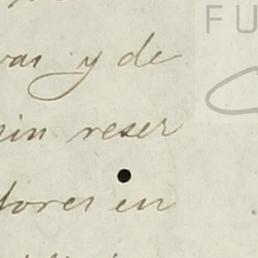 FU
var y de
sin reser
dores en